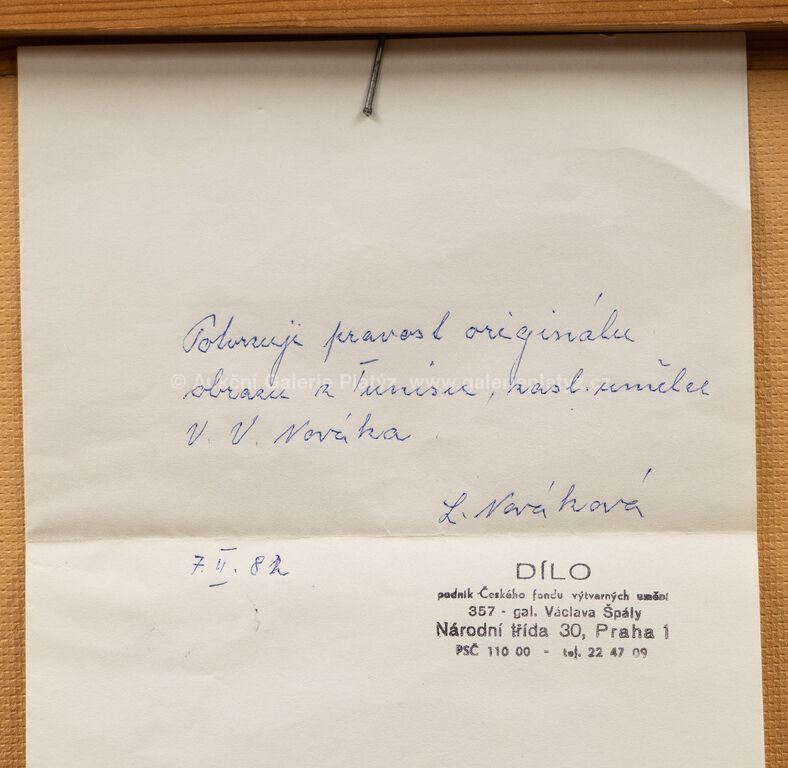 Potvrzuji pravost originálu
© Aukční Galerie Platýz, www.galerieplatyz.cz
obrazu z Tunisu, zasl. umělce
V. V. Nováka
L. Nováková
7. II. 82
DÍLO
podnik Českého fondu výtvarných umění
357 - gal. Václava Špály
Národní třída 30, Praha 1
PSČ 110 00 - tel. 22 47 09